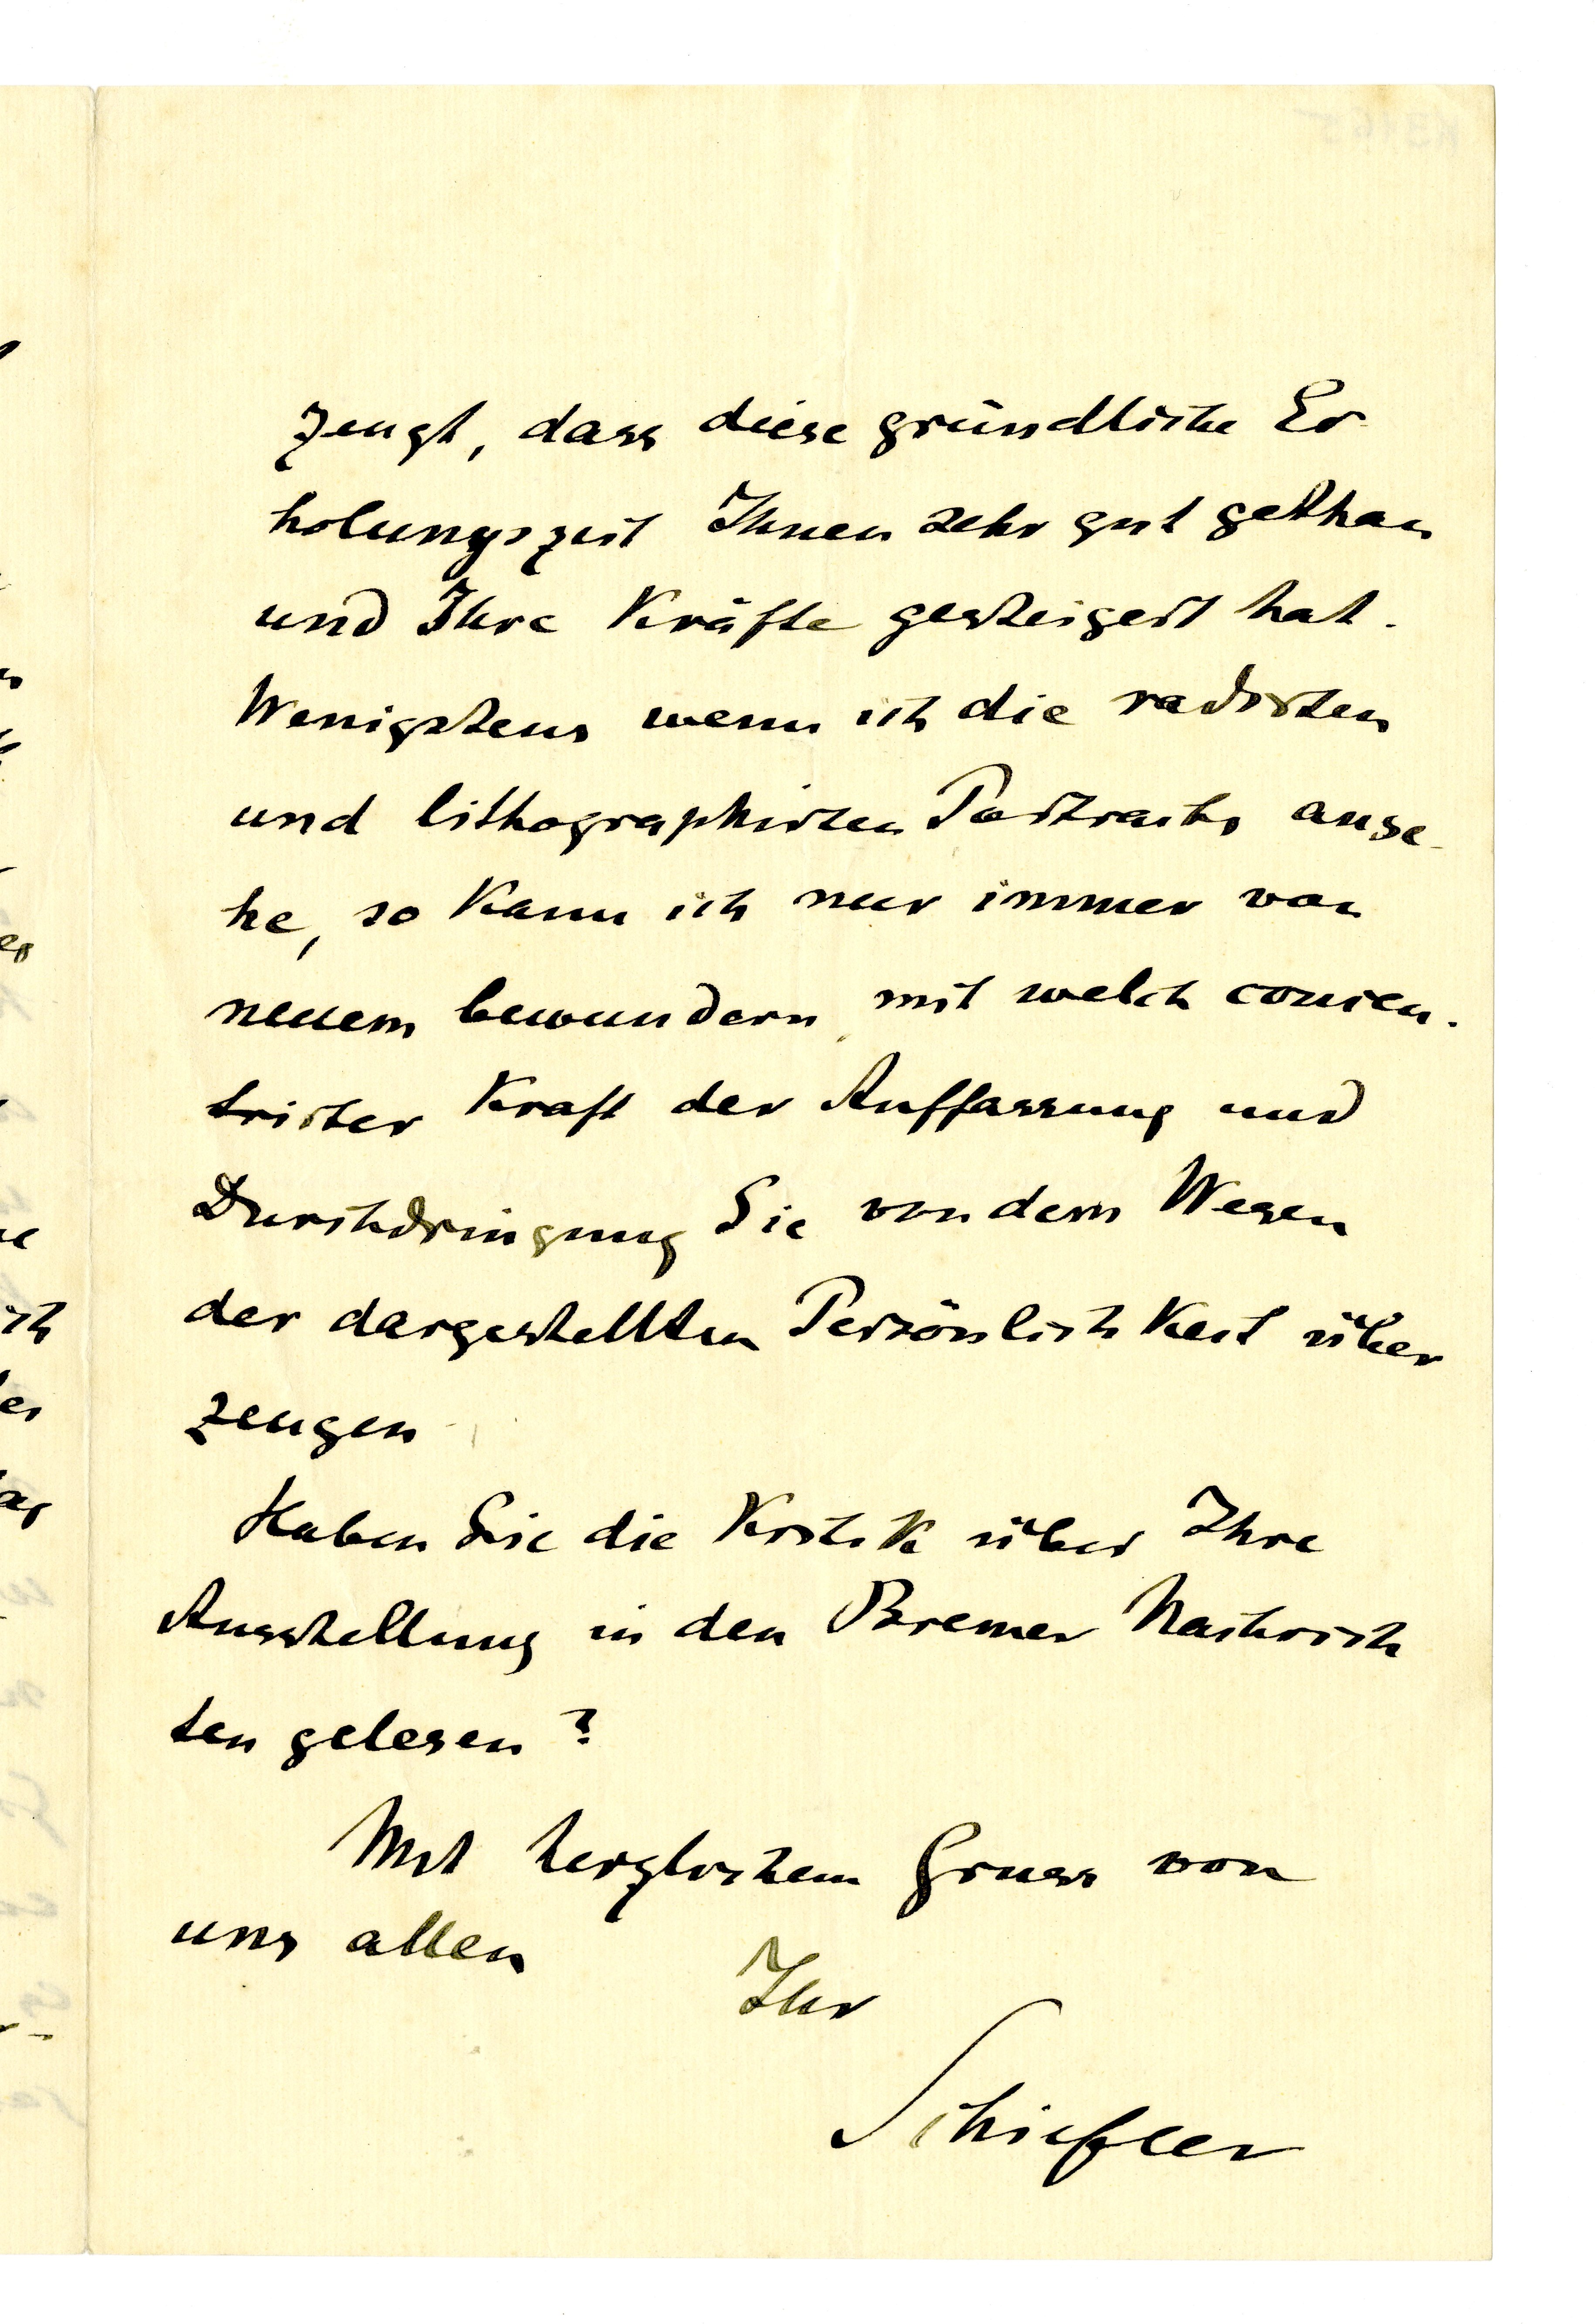 zeugt, dass diese gründliche Er-
holungszeit Ihnen sehr gut gethan
und Ihre Kräfte gesteigert hat.
Wenigstens wenn ich die radirten
und lithographirten Portraits anse-
he, so kann ich nur immer von
neuem bewundern, mit welch concen-
trirter Kraft der Auffassung und
Durchdringung Sie von dem Wesen
der dargestellten Persönlichkeit über
zeugen
Haben Sie die Kritik über Ihre
Ausstellung in den Bremer Nachrich
ten gelesen?
Mit herzlichem Gruss von
uns allen
Ihr
Schiefler